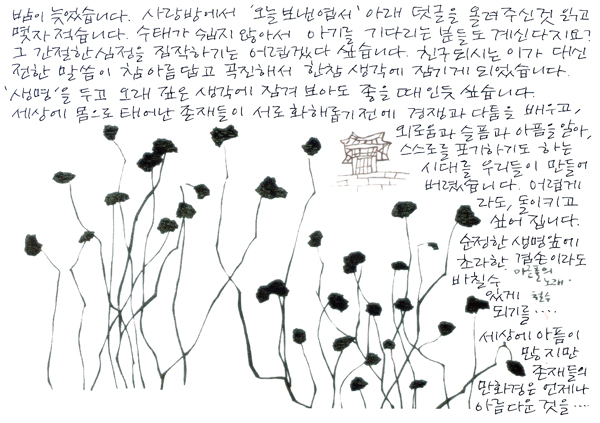 밤이 늦었습니다. 사랑방에서 '오늘 보낸 엽서' 아래 덧글을 올려주신 것 읽고
몇자 적습니다. 수태가 쉽지 않아서 아기를 기다리는 분들도 계신다지요?
그 간절한 심정을 짐작하기는 어렵겠다 싶습니다. 친구되시는 이가 대신
전한 말씀이 참 아름답고 곡진해서 한참 생각에 잠기게 되었습니다.
'생명'을 두고 오래 깊은 생각에 잠겨 보아도 좋을 때인듯 싶습니다.
세상에 몸으로 태어난 존재들이 서로 화해롭기전에 경쟁과 다툼을 배우고,
외로움과 슬픔과 아픔을 알아,
스스로를 포기하기도 하는
시대를 우리들이 만들어
버렸습니다. 어렵게
라도, 돌이키고
싶어 집니다.
순정한 생명앞에
초라한 겸손이라도
바칠수
있게
되기를····
마른풀의
노래.
철수
세상에 아픔이
많지만
존재들의
만화경은 언제나
아름다운 것을····